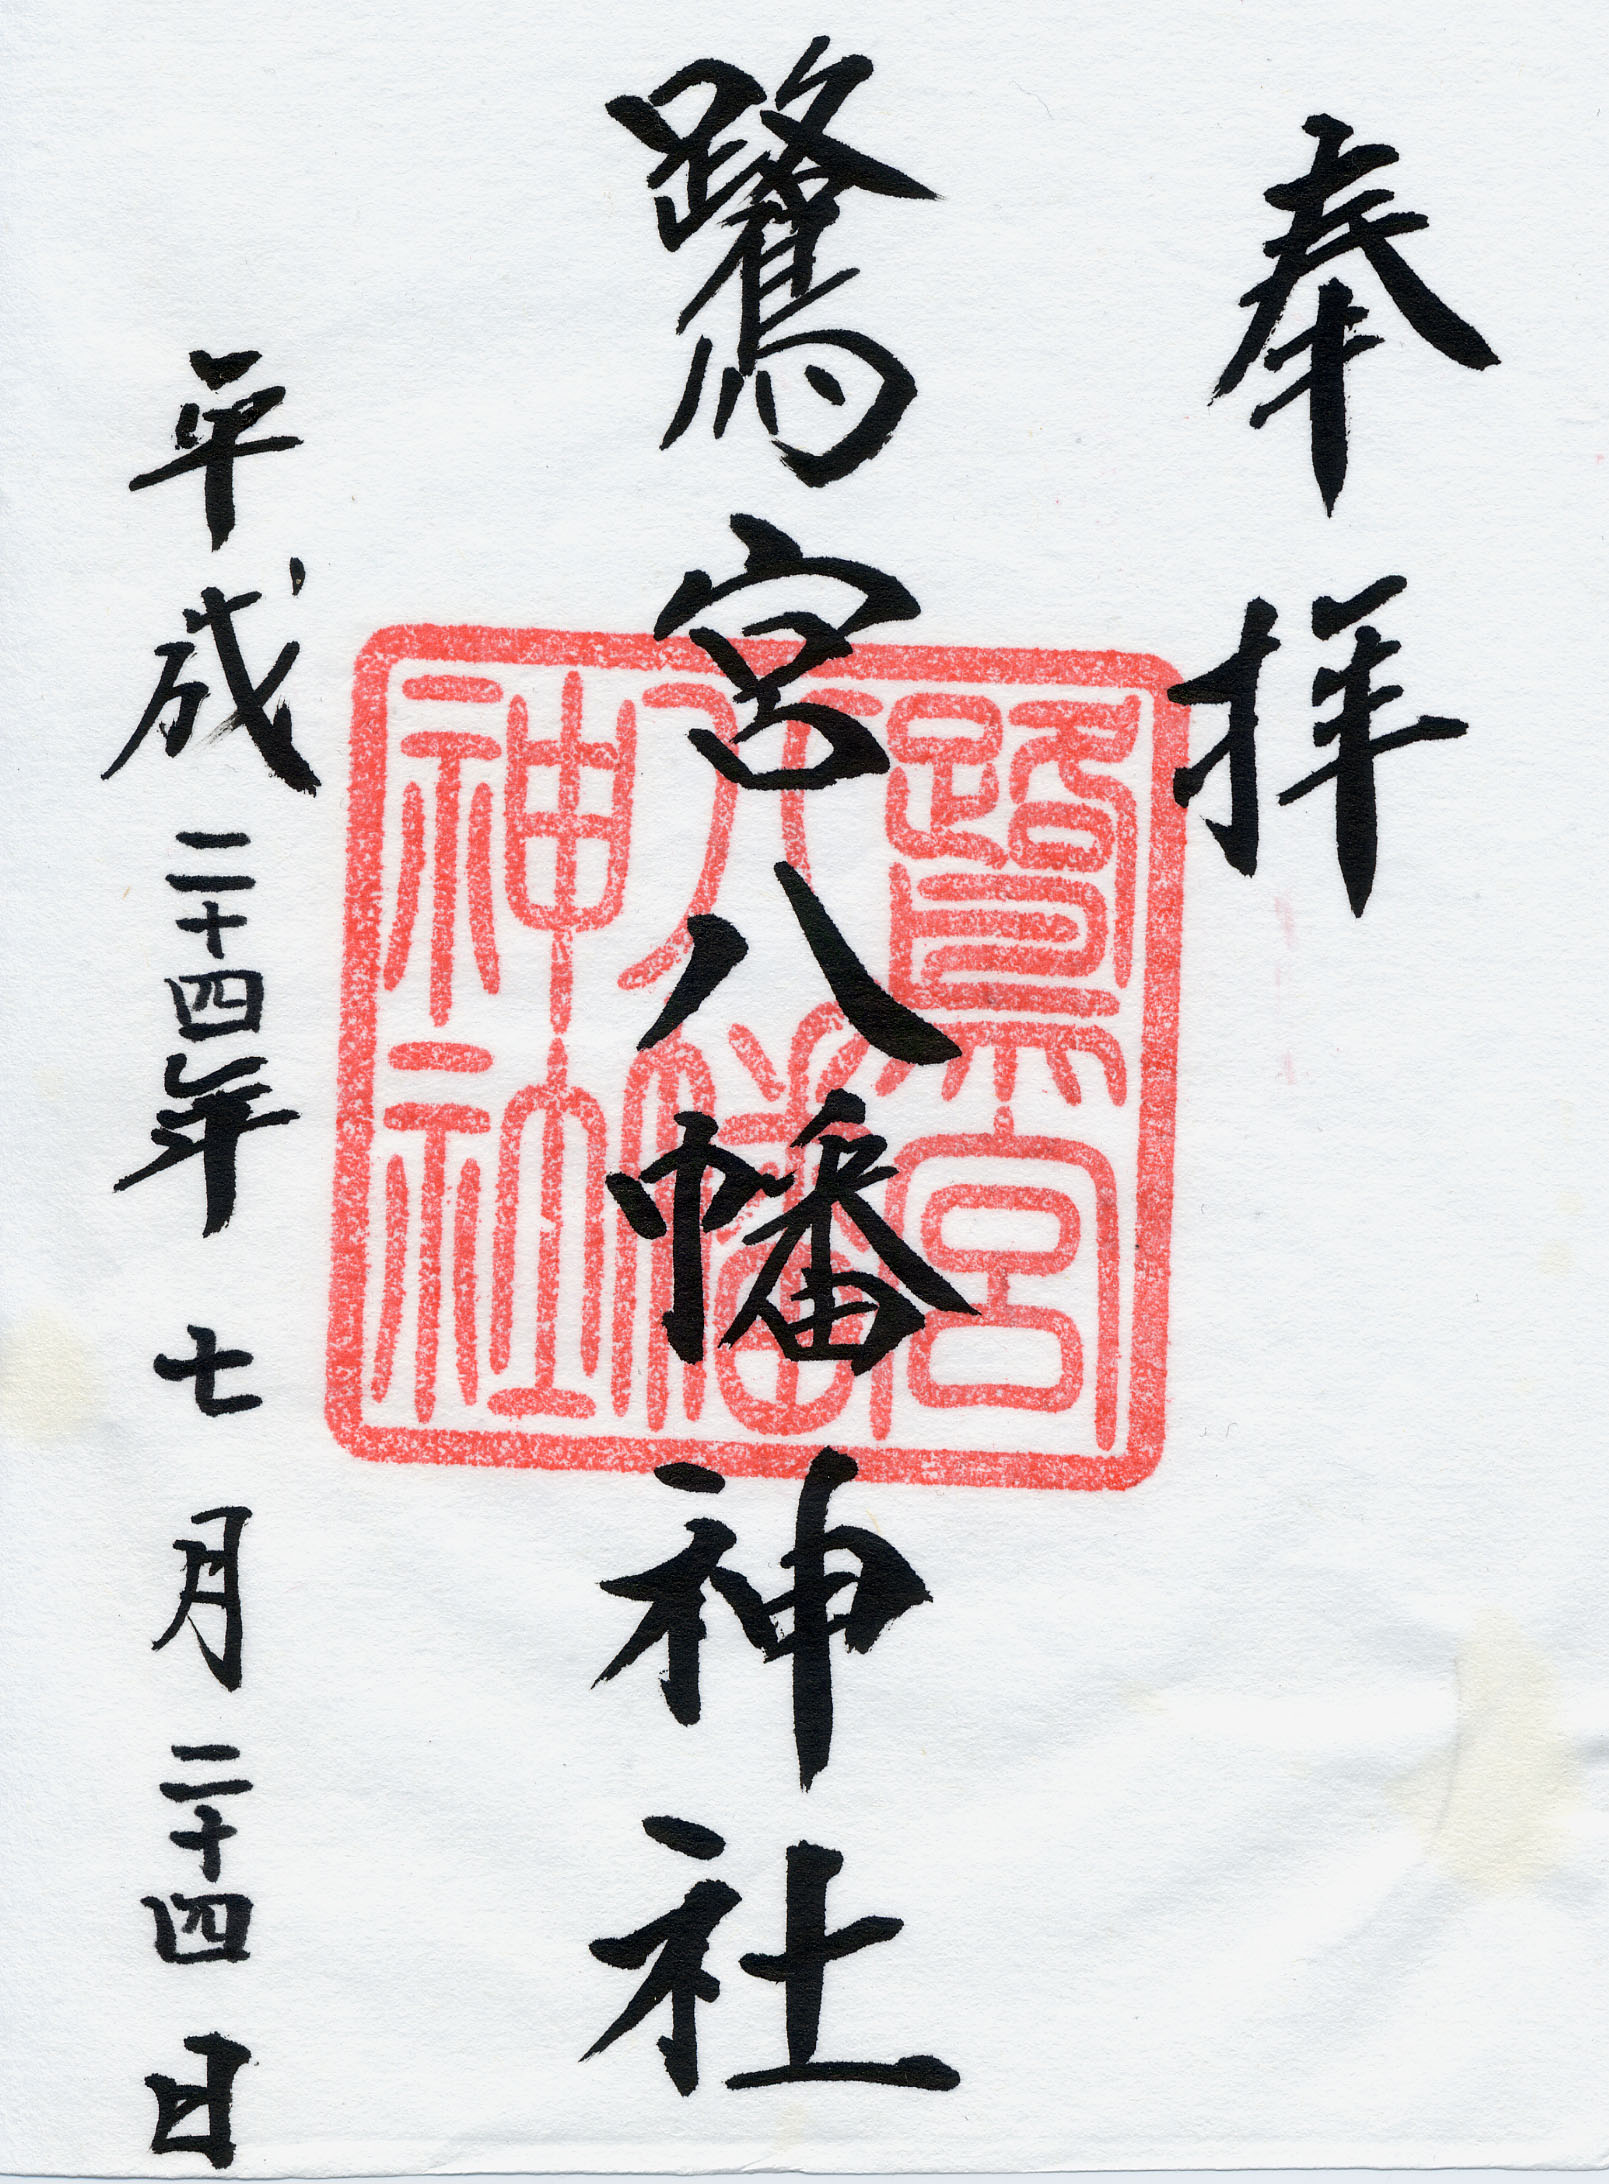 奉拝
鷺宮八幡神社
鷺宮
八幡
神社
平成二十四年七月二十四日